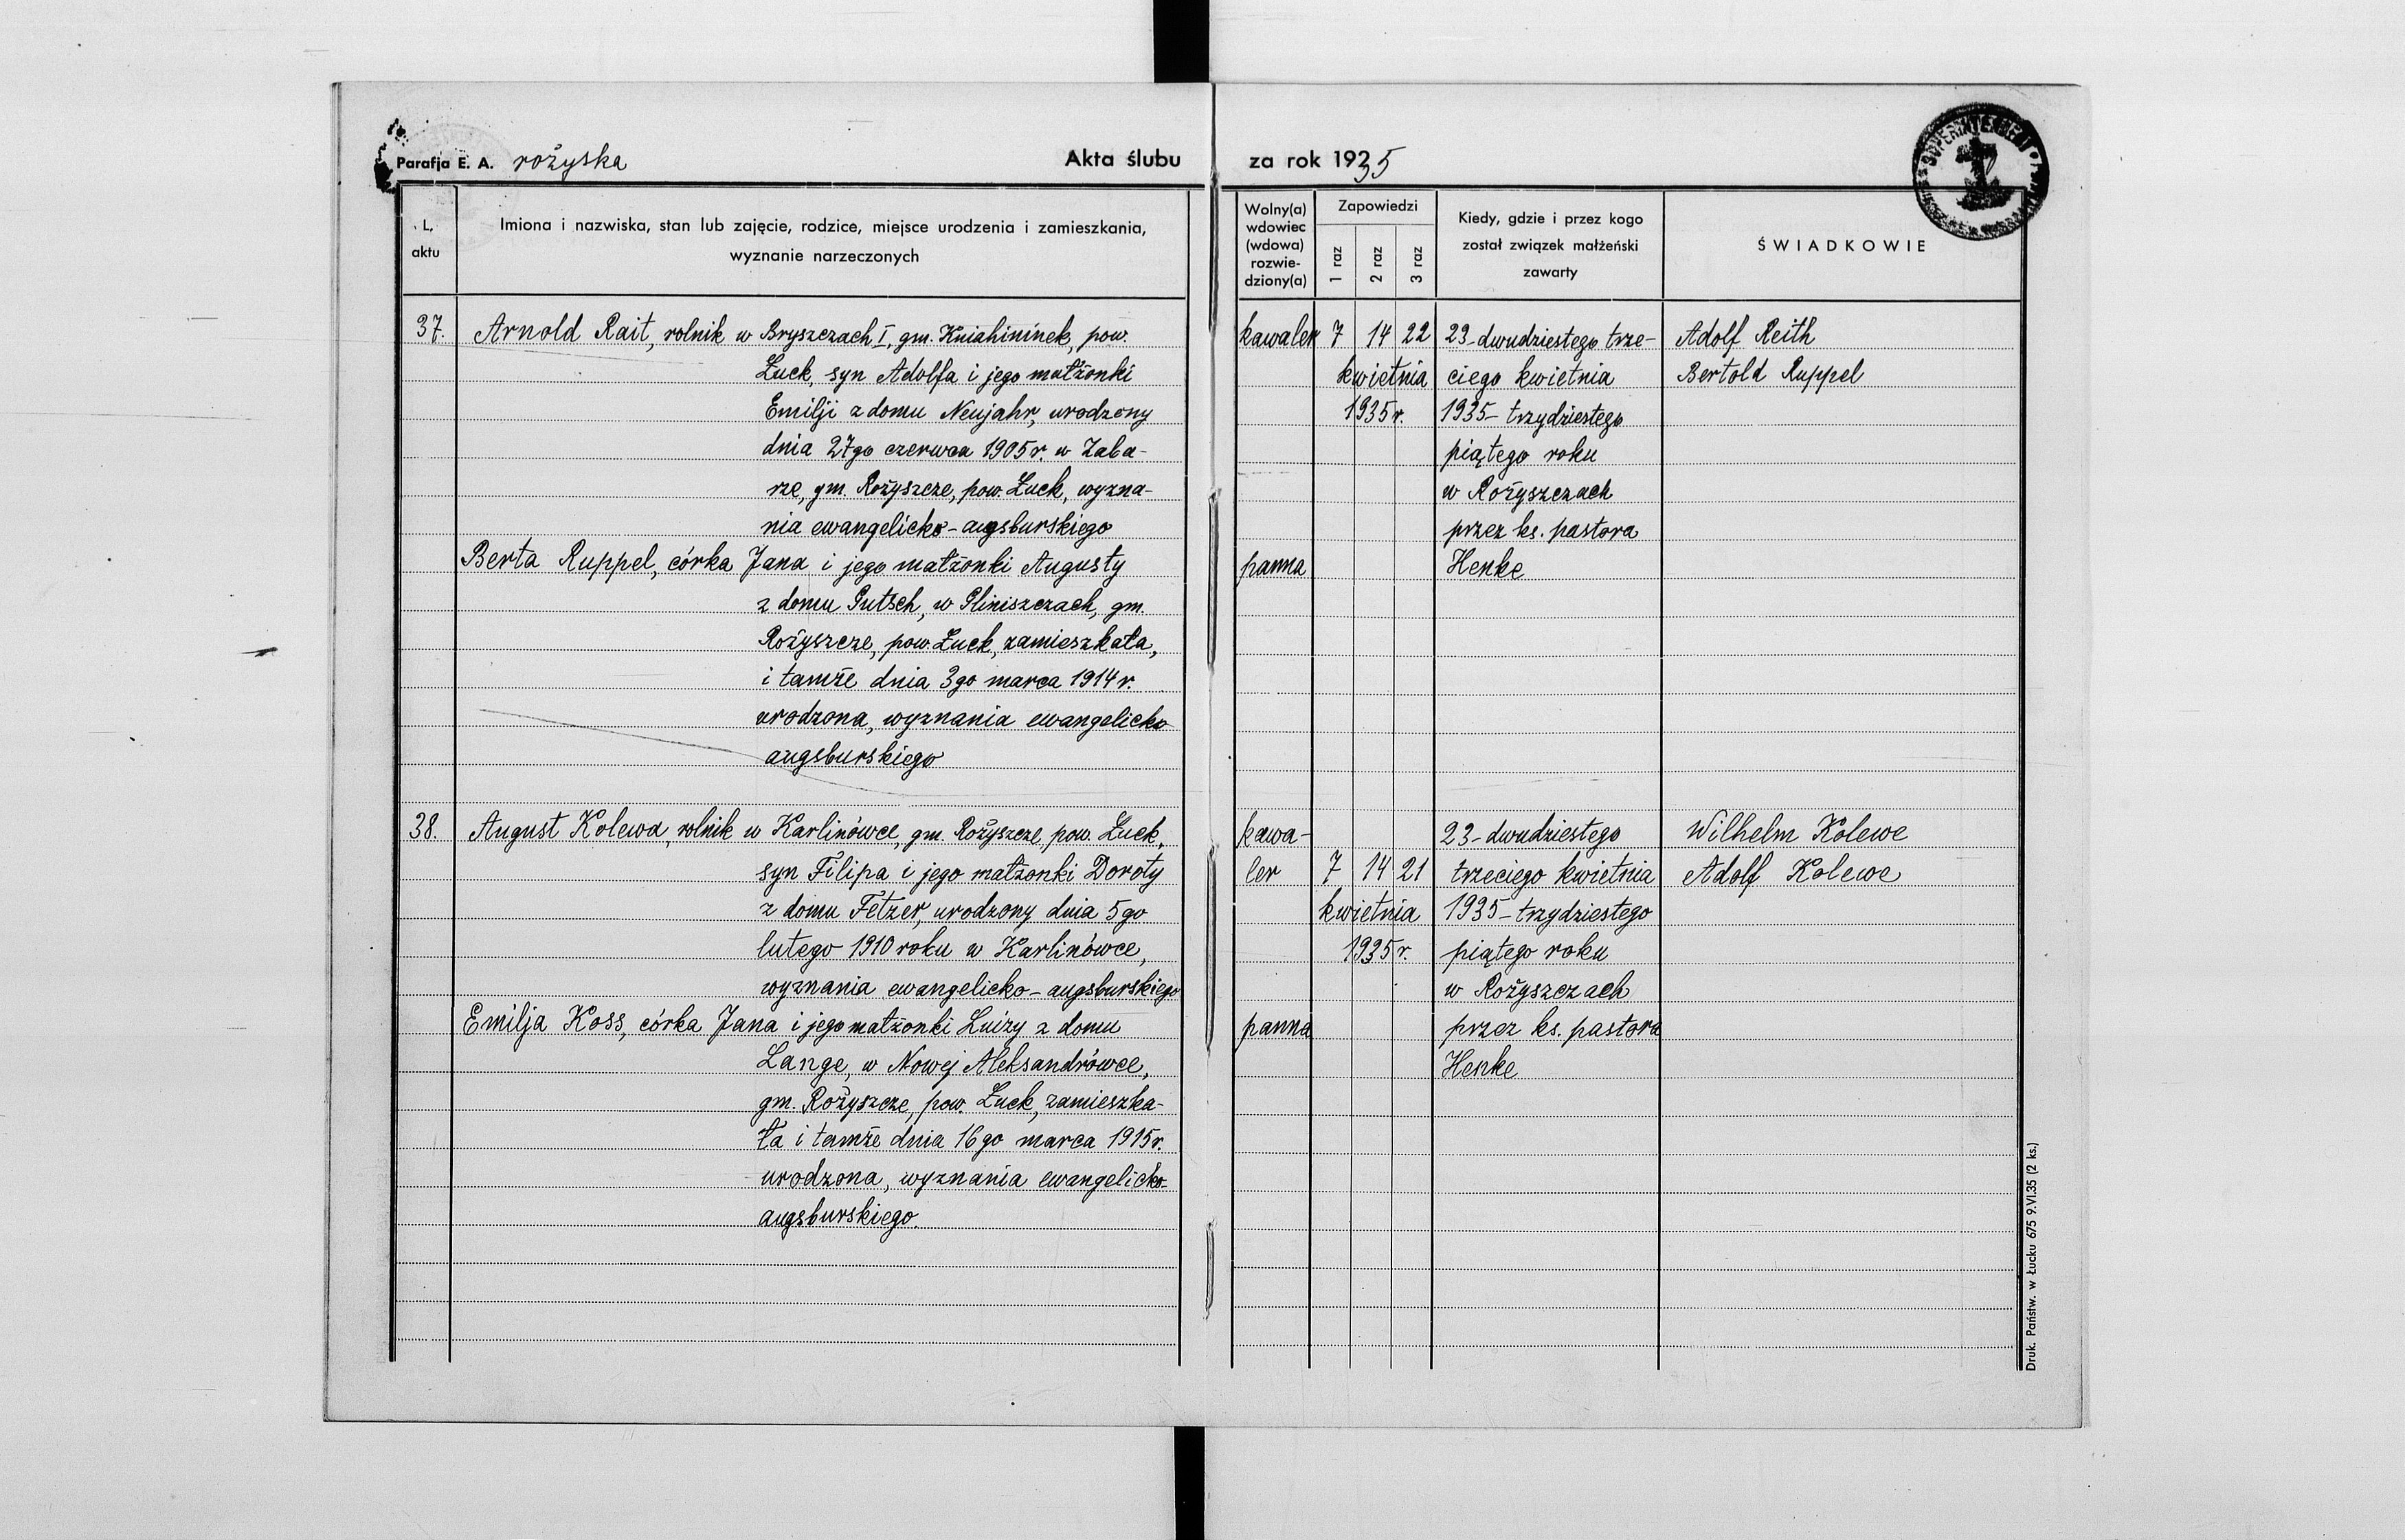 Parafja E. A. rożyska
Akta ślubu za rok 1935
L. aktu
Imiona i nazwiska, stan lub zajęcie, rodzice, miejsce urodzenia i zamieszkania,
wyznanie narzeczonych
Wolny(a)
wdowiec
(wdowa)
rozwie-
dziony(a)
Zapowiedzi
1 raz
2 raz
3 raz
Kiedy, gdzie i przez kogo
został związek małżeński
zawarty
ŚWIADKOWIE
37. Arnold Rait, rolnik w Bryszczach I, gm. Kniahininek, pow.
Łuck, syn Adolfa i jego małżonki
Emilji z domu Neujahr, urodzony
dnia 27go czerwca 1905 r. w Zaba-
rze, gm. Rożyszcze, pow. Łuck, wyzna-
nia ewangelicko-augsburskiego
Berta Ruppel, córka Jana i jego małżonki Augusty
z domu Gutsch, w Pliniszczach, gm.
Rożyszcze, pow. Łuck, zamieszkała,
i tamże dnia 3go marca 1914 r.
urodzona, wyznania ewangelicko
augsburskiego
kawaler
panna
7 14 22
kwietnia
1935 r.
23-dwudziestego trze-
ciego kwietnia
1935-trzydziestego
piątego roku
w Rożyszczach
przez ks. pastora
Henke
Adolf Reith
Bertold Ruppel
38. August Kolewa, rolnik w Karlinówce, gm. Rożyszcze, pow. Łuck,
syn Filipa i jego małżonki Doroty
z domu Fetzer, urodzony dnia 5go
lutego 1910 roku w Karlinówce,
wyznania ewangelicko-augsburskiego
Emilja Koss, córka Jana i jego małżonki Luizy z domu
Lange, w Nowej Aleksandrówce,
gm. Rożyszcze, pow. Łuck, zamieszka-
ła i tamże dnia 16go marca 1915 r.
urodzona, wyznania ewangelicko-
augsburskiego.
kawa-
ler
panna
7 14 21
kwietnia
1935 r.
23-dwudziestego
trzeciego kwietnia
1935-trzydziestego
piątego roku
w Rożyszczach
przez ks. pastora
Henke
Wilhelm Kolewe
Adolf Kolewe
Druk. Państw. w Łucku 675 9.VI.35 (2 ks.)